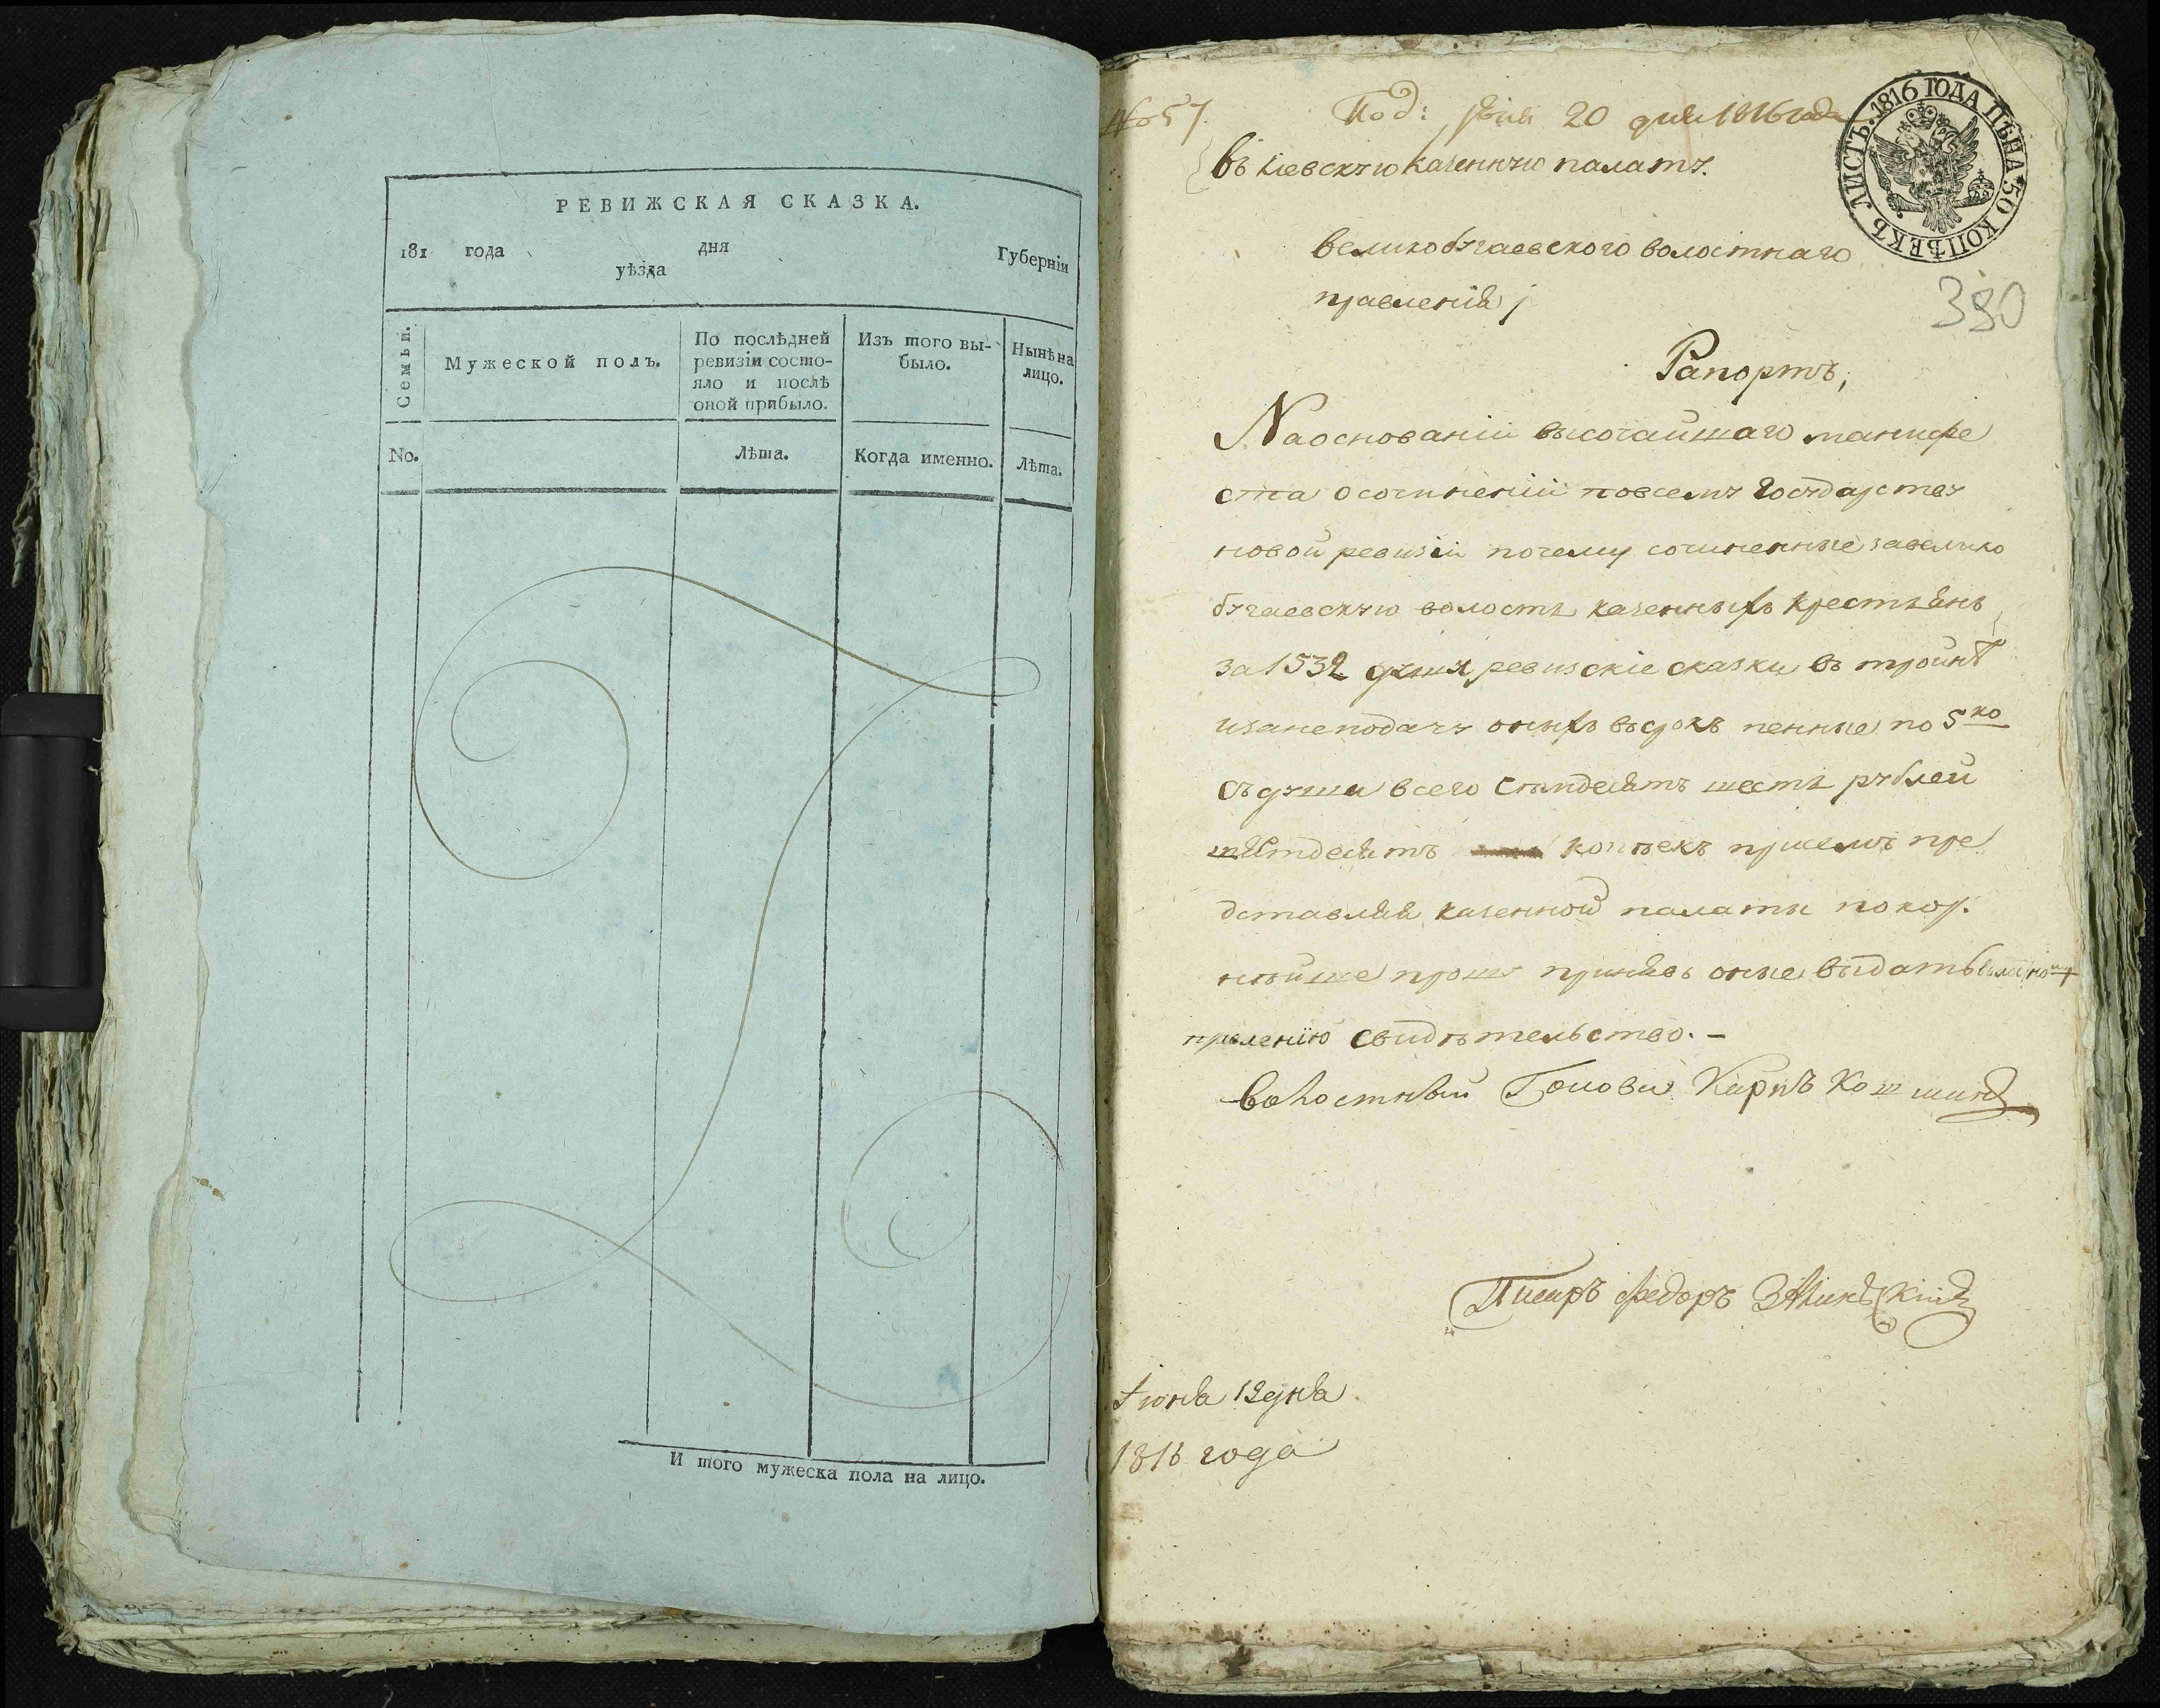 РЕВИЖСКАЯ СКАЗКА.
181 года дня
уѣзда Губерніи
Семьи.
Мужеской полъ.
По послѣдней
ревизіи состо-
яло и послѣ
оной прибыло.
Изъ того вы-
было.
Нынѣ на
лицо.
No.
Лѣта.
Когда именно.
Лѣта.
И того мужеска пола на лицо.
№ 57.
Под: 20 дня 1816 года
ЛИСТЪ. 1816 ГОДА ЦѢНА 50 КОПѢЕКЪ
въ кіевскую казенную палату.
великобугаевского волостнаго
правленія
380
Рапортъ,
На основаніи высочайшаго манифе
ста о сочиненіи по всему государству
новой ревизіи почему сочиненные за велико
бугаевскую волость казенныхъ крестьянъ
за 1532 душъ ревизскіе сказки въ тройнѣ
и за неподачу оныхъ въ срокъ пенные по 5 ко
съ души всего семдесятъ шесть рублей
шѣстдесятъ копѣекъ присемъ пре
дставляя казенной палаты покор.
нѣйше прошу принявъ оные выдать волосному
правленію свидѣтельство. -
волостный Голова Карпъ
Писаръ Федоръ
Іюня 12 дня
1816 года